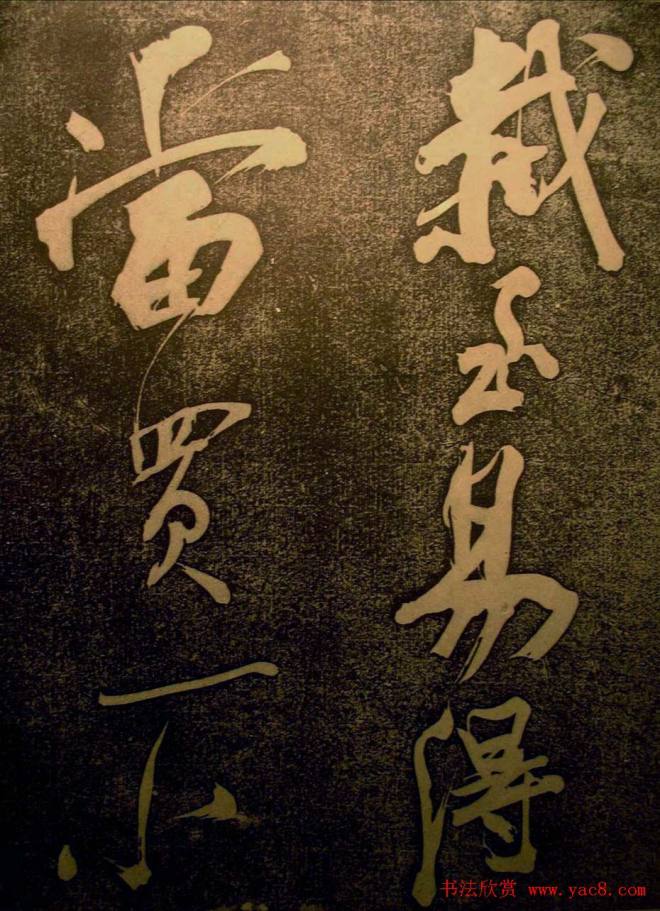 易得
當買一小
书法欣赏 www.yac8.com